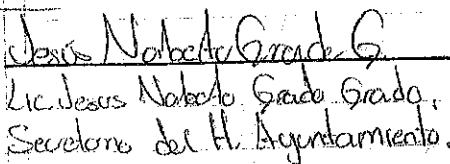 Jesús Noberto Grado G.
Lic. Jesus Noberto Grado Grado.
Secretario del H. Ayuntamiento.